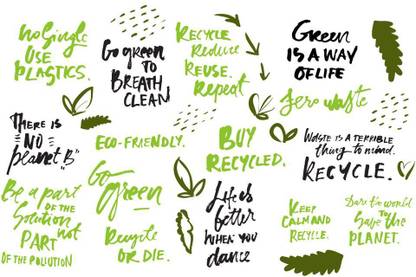 No Single
USE
PLASTICS.
Go green
TO
BREATH
CLEAN
RECYCLE
Reduce
REUSE.
Repeat
Green
IS A WAY
OF LIFE
Zero waste
THERE IS
"NO"
planet "B"
ECO-FRIENDLY.
BUY
RECYCLED.
WASTE IS A TERRIBLE
thing to mind.
RECYCLE.
Be a part
OF THE
Solution
not
PART
OF THE POLLUTION
Go
Green
Recycle
OR DIE.
Life is
better
WHEN YOU
dance
KEEP
CALM AND
RECYCLE.
Dare the world
to
Save the
PLANET.